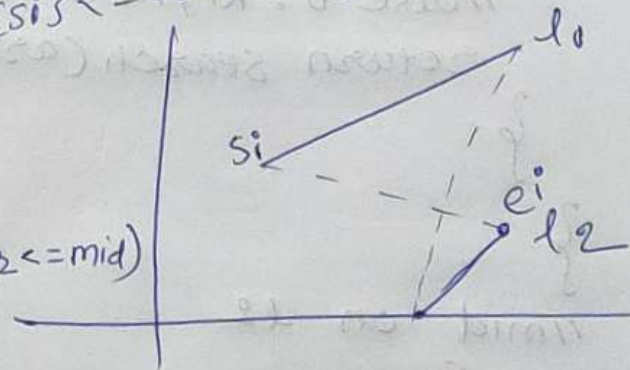 l1
si
ei
l2
<=mid)